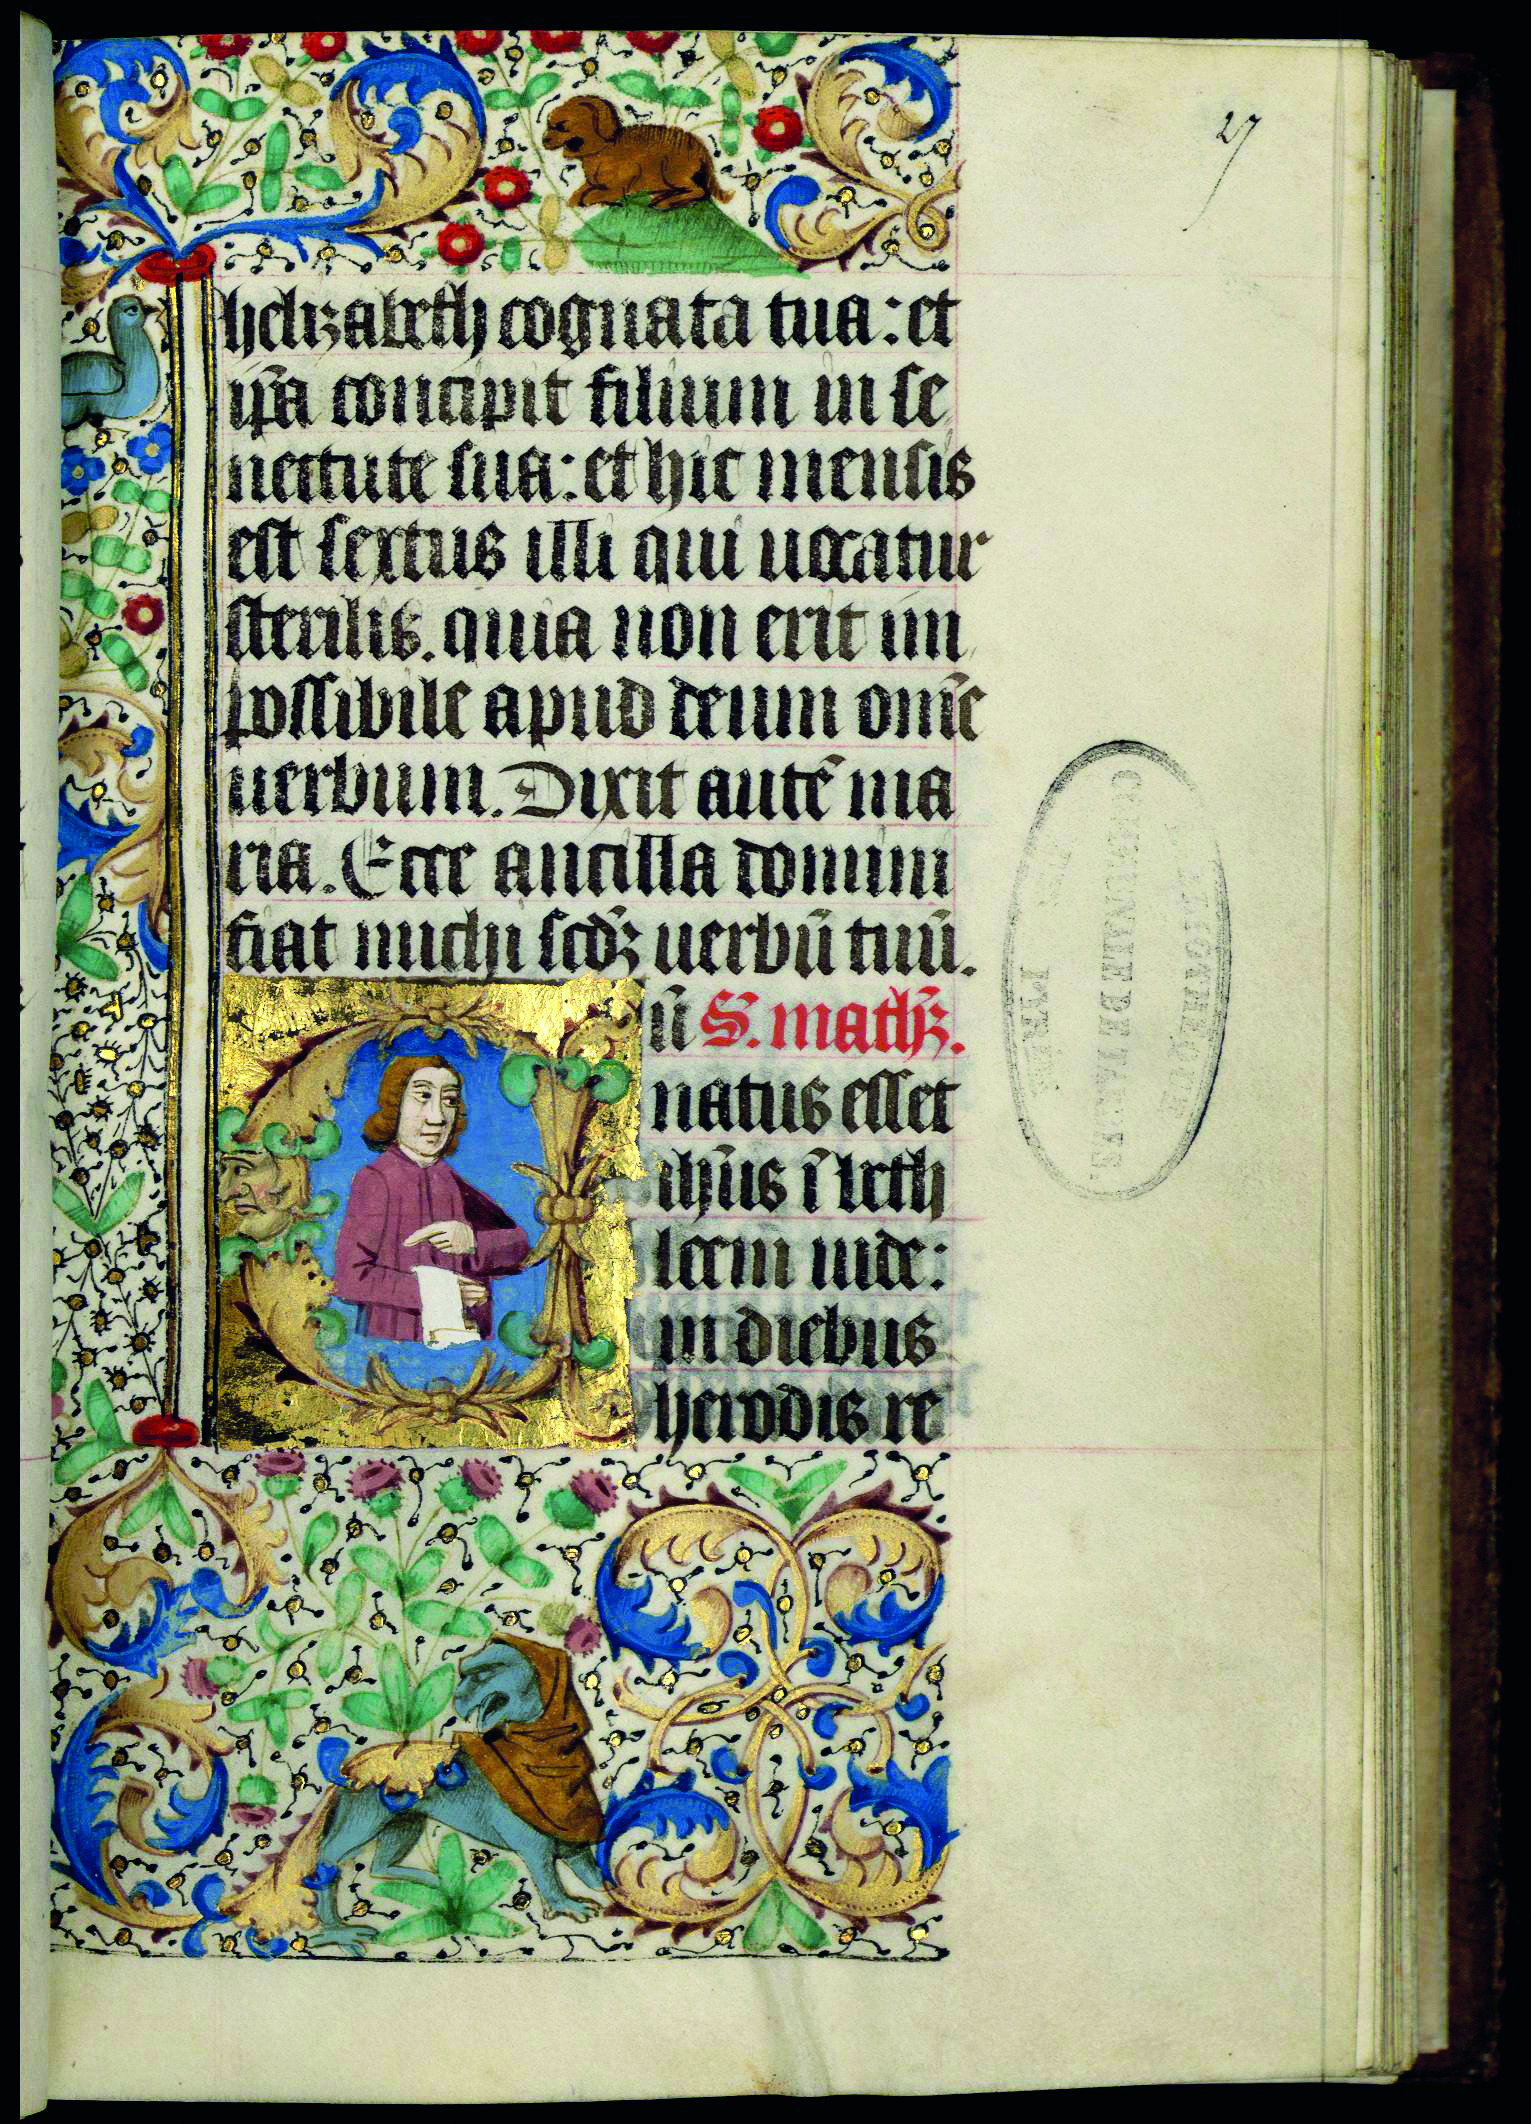 27
helizabeth cognata tua: et
ip̃a concipit filium in se
nectute sua: et hic mensis
est sextus illi qui uocatur
sterilis. quia non erit im
possibile apud deum om̃e
uerbum. Dixit autẽ ma
ria. Ecce ancilla domini
fiat michi scd̃ꝫ uerbũ tuũ.
Cũ S. math̃ꝫ.
natus esset
ihũs ĩ beth
leem iude:
in diebus
herodis re
COMMUNALE DE